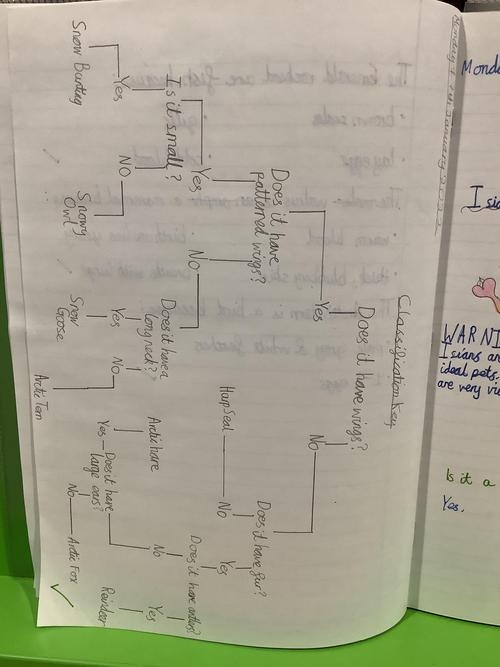 Classification Key
Does it have wings?
Yes
No
Does it have
patterned wings?
Yes
No
Is it small?
Yes
Snow Bunting
NO
Snowy
Owl
Does it have a
long neck?
Yes
Snow
Goose
No
Arctic Tern
Does it have fur?
No
Harp Seal
Yes
Does it have antlers?
Yes
Reindeer
No
Does it have
large ears?
Yes
Arctic hare
No
Arctic Fox
Monda
I si
WARNI
Isians ar
ideal pets.
are very vi
Is it a
Yes.